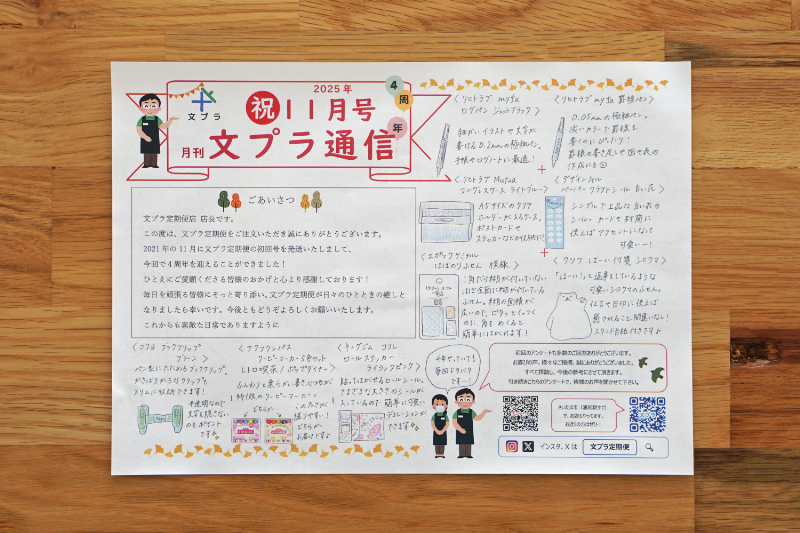 2025年
4周年
文プラ
祝 11月号
月刊 文プラ通信
ごあいさつ
文プラ定期便店 店長です。
この度は、文プラ定期便をご注文いただき誠にありがとうございます。
2021年の11月に文プラ定期便の初回号を発送いたしまして、
今回で4周年を迎えることができました!
ひとえにご愛顧くださる皆様のおかげと心より感謝しております!
毎日を頑張る皆様にそっと寄り添い、文プラ定期便が日々のひとときの癒しと
なりましたら幸いです。今後ともどうぞよろしくお願いいたします。
これからも素敵な日常でありますように
〈リヒトラブ myfa
ログペン ジェットブラック〉
細かいイラストや文字が
書ける0.3mmの極細ペン。
手帳やログノートに最適!
〈リヒトラブ myfa 罫線ペン〉
0.05mmの極細ペン。
淡いカラーで罫線を
書くのにぴったり!
罫線の書き足しや図や表の
作成にも
〈リヒトラブ Mutua
コングレスケース ライトグレー〉
A5サイズのクリア
ホルダーが入るケース。
ポストカードや
ステッカーなどの収納に!!
〈デザインフィル
ペーパークラフトシール 白い花〉
シンプルで上品な白い花の
シール。カードや封筒に
使えばアクセントになって
可愛いー!
〈エポックケミカル
はばのりふせん 模様〉
1角だけ糊が付いていない
ほぼ全面に糊が付いている
ふせん。糊の面積が
広いので、ピタッとくっつく
のに、角をめくると
簡単にはがれます!
〈クツワ はーい付箋 シロクマ〉
「はーい」と返事をしているような
可愛いシロクマのふせん。
伝言や目印に使えば
癒されること間違いなし!
スタンド台紙付きですよ
〈コクヨ ブックラップクリップ
グリーン〉
ペン型にたためるブッククリップ。
かさばりがちなクリップを
スリムに収納できます!
半透明なので
文字を隠さない
のもポイント
です
クーピーマーカー 5色セット
レトロ喫茶 / ポップダイナー〉
ふんわりと柔らかい書きごこちが
特徴のクーピーマーカー。
どちらか
お届けですよ
〈キングジム コフレ
ロールステッカー
ライティングピンク〉
貼ってはがせるロールシール。
さまざまな大きさのシールが
入っているので、簡単に可愛い
デコレーションが
できます
4年やっていても
毎回ドキドキ
です…!
前回のアンケートも多数のご回答ありがとうございます。
お喜びの声、様々なご指摘、誠にありがとうございました。
すべて拝読し、今後の参考にさせて頂きます。
引き続きこちらのアンケートで、皆様のお声を聞かせて下さい。
インスタ、X は 文プラ定期便